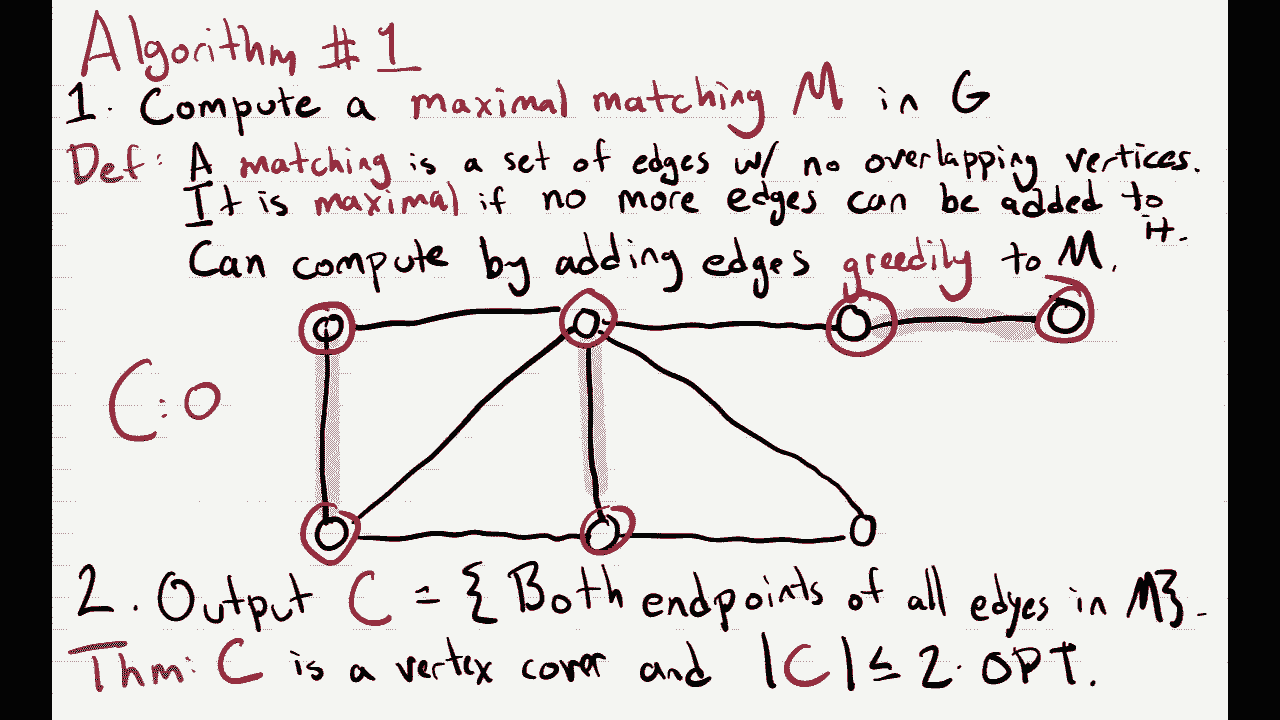 Algorithm #1
1. Compute a maximal matching M in G
Def: A matching is a set of edges w/ no overlapping vertices.
It is maximal if no more edges can be added to it.
Can compute by adding edges greedily to M.
C: O
2. Output C = { Both endpoints of all edges in M}.
Thm: C is a vertex cover and |C| ≤ 2·OPT.